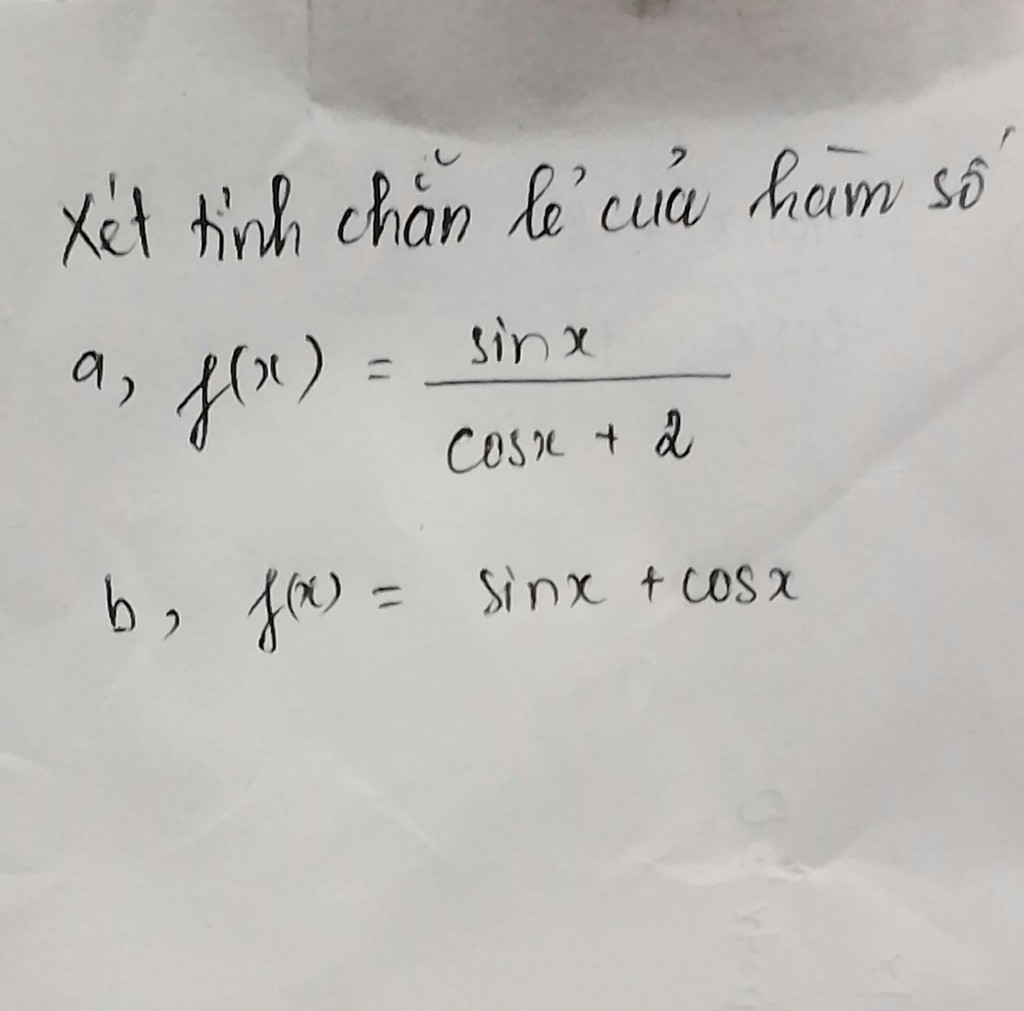 Xét tính chẵn lẻ của hàm số
a, f(x) = sinx / cosx + 2
b, f(x) = sinx + cosx